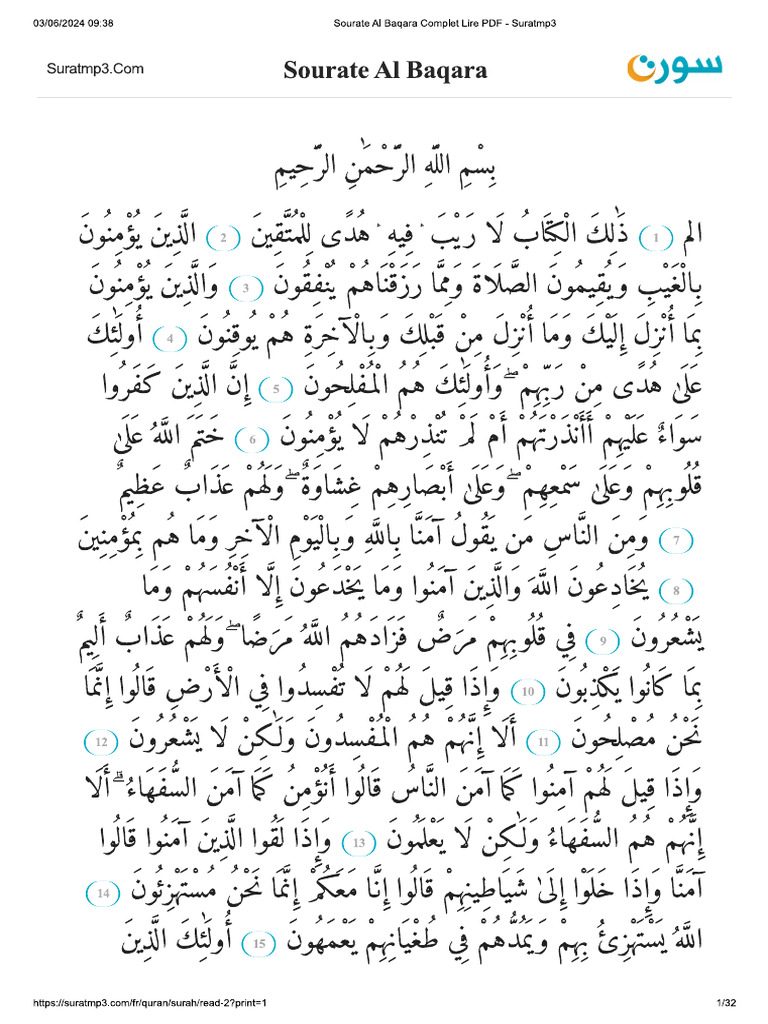 03/06/2024 09:38 Sourate Al Baqara Complet Lire PDF - Suratmp3
Suratmp3.Com Sourate Al Baqara سورة
بِسْمِ اللَّهِ الرَّحْمَٰنِ الرَّحِيمِ
الم (1) ذَٰلِكَ الْكِتَابُ لَا رَيْبَ ۛ فِيهِ ۛ هُدًى لِلْمُتَّقِينَ (2) الَّذِينَ يُؤْمِنُونَ
بِالْغَيْبِ وَيُقِيمُونَ الصَّلَاةَ وَمِمَّا رَزَقْنَاهُمْ يُنْفِقُونَ (3) وَالَّذِينَ يُؤْمِنُونَ
بِمَا أُنْزِلَ إِلَيْكَ وَمَا أُنْزِلَ مِنْ قَبْلِكَ وَبِالْآخِرَةِ هُمْ يُوقِنُونَ (4) أُولَٰئِكَ
عَلَىٰ هُدًى مِنْ رَبِّهِمْ ۖ وَأُولَٰئِكَ هُمُ الْمُفْلِحُونَ (5) إِنَّ الَّذِينَ كَفَرُوا
سَوَاءٌ عَلَيْهِمْ أَأَنْذَرْتَهُمْ أَمْ لَمْ تُنْذِرْهُمْ لَا يُؤْمِنُونَ (6) خَتَمَ اللَّهُ عَلَىٰ
قُلُوبِهِمْ وَعَلَىٰ سَمْعِهِمْ ۖ وَعَلَىٰ أَبْصَارِهِمْ غِشَاوَةٌ ۖ وَلَهُمْ عَذَابٌ عَظِيمٌ
(7) وَمِنَ النَّاسِ مَن يَقُولُ آمَنَّا بِاللَّهِ وَبِالْيَوْمِ الْآخِرِ وَمَا هُم بِمُؤْمِنِينَ
(8) يُخَادِعُونَ اللَّهَ وَالَّذِينَ آمَنُوا وَمَا يَخْدَعُونَ إِلَّا أَنْفُسَهُمْ وَمَا
يَشْعُرُونَ (9) فِي قُلُوبِهِمْ مَرَضٌ فَزَادَهُمُ اللَّهُ مَرَضًا ۖ وَلَهُمْ عَذَابٌ أَلِيمٌ
بِمَا كَانُوا يَكْذِبُونَ (10) وَإِذَا قِيلَ لَهُمْ لَا تُفْسِدُوا فِي الْأَرْضِ قَالُوا إِنَّمَا
نَحْنُ مُصْلِحُونَ (11) أَلَا إِنَّهُمْ هُمُ الْمُفْسِدُونَ وَلَٰكِنْ لَا يَشْعُرُونَ (12)
وَإِذَا قِيلَ لَهُمْ آمِنُوا كَمَا آمَنَ النَّاسُ قَالُوا أَنُؤْمِنُ كَمَا آمَنَ السُّفَهَاءُ ۗ أَلَا
إِنَّهُمْ هُمُ السُّفَهَاءُ وَلَٰكِنْ لَا يَعْلَمُونَ (13) وَإِذَا لَقُوا الَّذِينَ آمَنُوا قَالُوا
آمَنَّا وَإِذَا خَلَوْا إِلَىٰ شَيَاطِينِهِمْ قَالُوا إِنَّا مَعَكُمْ إِنَّمَا نَحْنُ مُسْتَهْزِئُونَ (14)
اللَّهُ يَسْتَهْزِئُ بِهِمْ وَيَمُدُّهُمْ فِي طُغْيَانِهِمْ يَعْمَهُونَ (15) أُولَٰئِكَ الَّذِينَ
https://suratmp3.com/fr/quran/surah/read-2?print=1 1/32